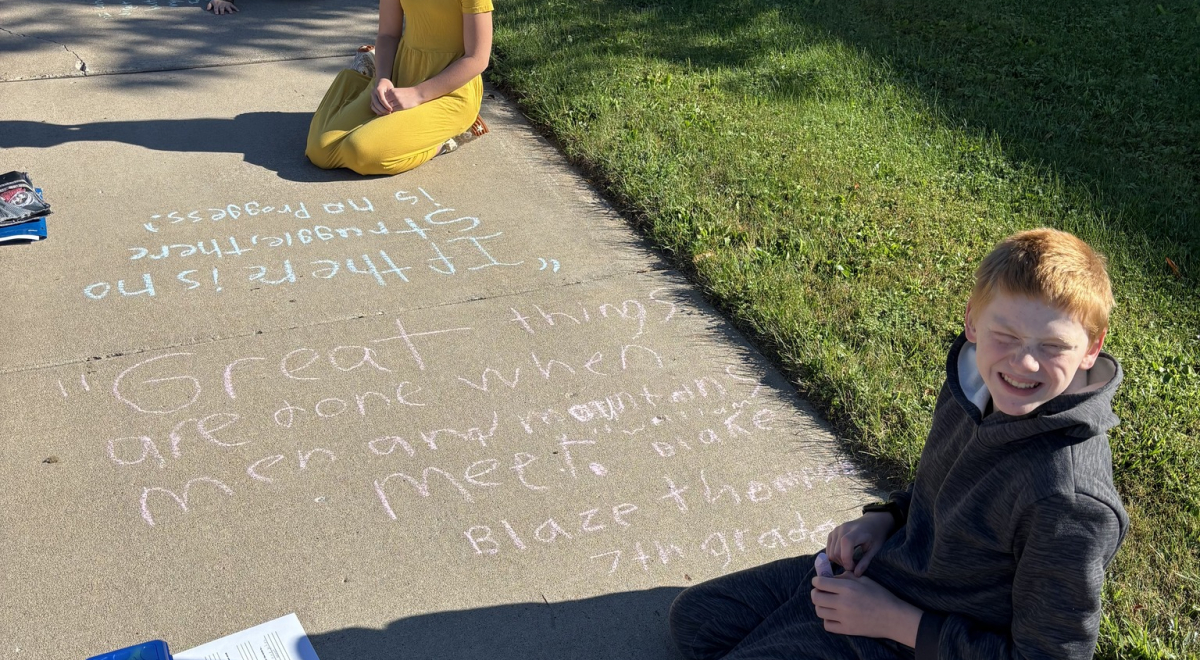 "If there is no
Struggle, There
is no Proggess."
"Great things
are done when
men and mountans
meet. William
Blake
Blaze
7th grade